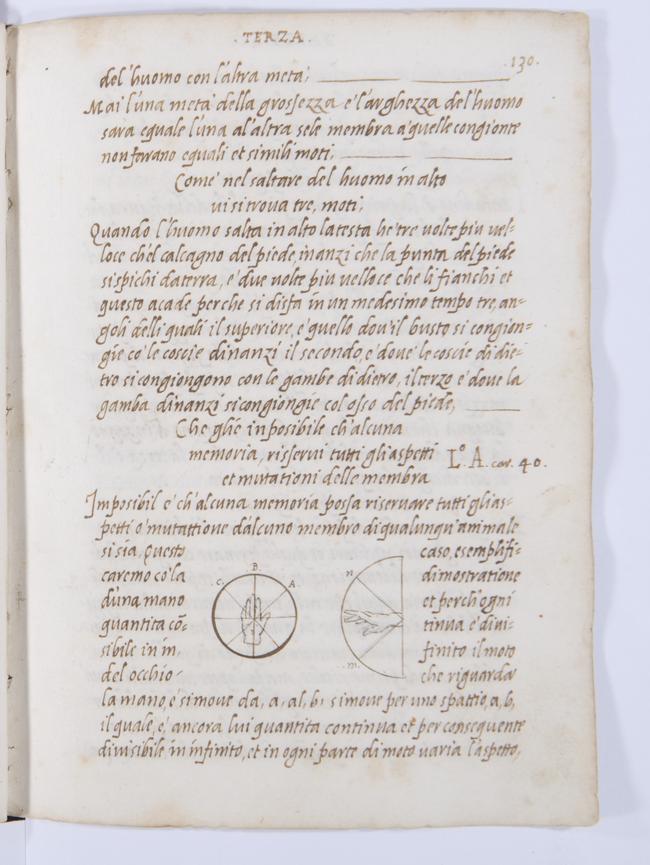 . TERZA .
.130.
del'huomo con l'altra metà;
Mai l'una metà della grossezza e l'arghezza del'huomo
sarà eguale l'una al'altra se le membra a quelle congionte
non farano eguali et simili moti;
Come' nel saltare del huomo in alto
vi si trova tre, moti;
Quando l'huomo salta in alto la testa he tre volte piu vel-
loce ch'el calcagno del piede, inanzi che la punta del piede
si spichi da terra, e' due volte piu velloce che li fianchi et
questo acade perche si disfa in un medesimo tempo tre, an-
goli delli quali il superiore, e' quello dov'il busto si congion-
gie co' le coscie dinanzi il secondo, e' dove' le coscie di die-
tro si congiongono con le gambe di dietro, il terzo e' dove la
gamba dinanzi si congiongie col osso del piede,
Che glie inposibile ch'alcuna
memoria, risservi tutti gli aspetti
et mutationi delle membra
L.º A. car. 40.
Imposibil e' ch'alcuna memoria possa riservare tutti gli as-
petti o' mutattione d'alcuno membro di qualunqu'animale
si sia, questo caso, esemplifi-
caremo co' la dimostratione
d'una mano et perch'ogni
quantita cō- tinua e' divi-
sibile in in- finito il moto
del occhio- che riguarda
C. B. A
n.
.m.
la mano, e' si move da, a, al, b, si move per uno spattio, a, b,
il quale, e' ancora lui quantita continua et per consequente
divisibile in infinito, et in ogni parte di moto varia l'aspetto,